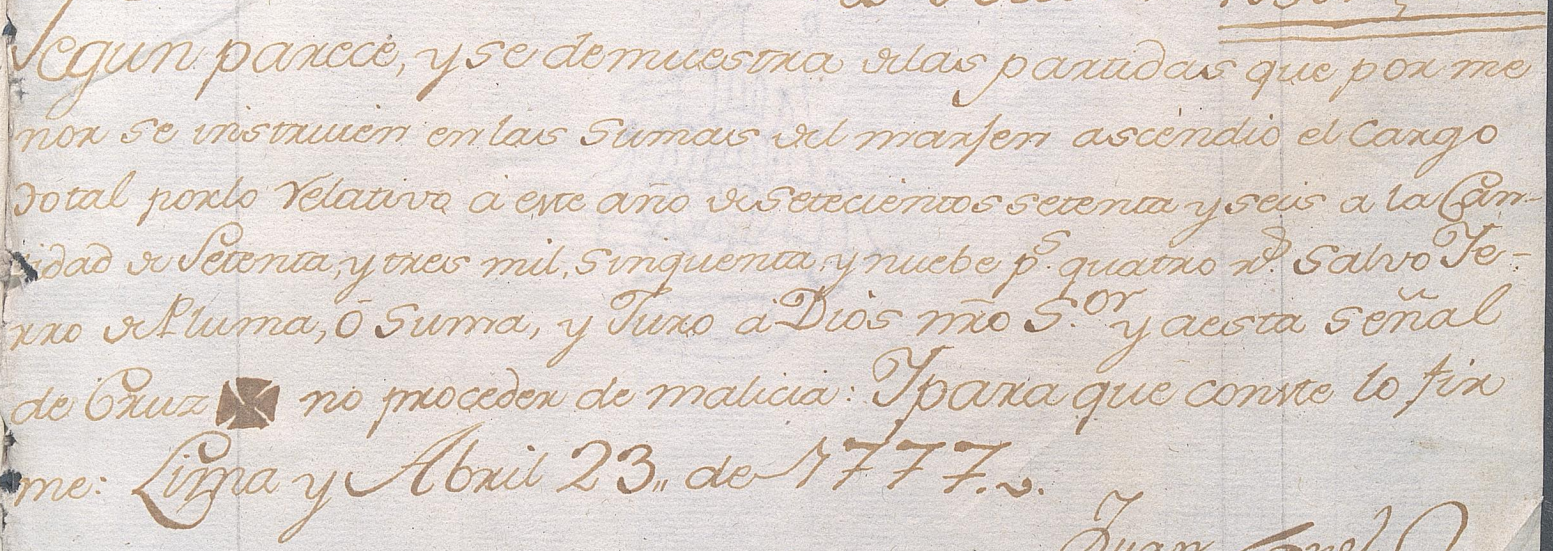 Segun parece, y se demuestra de las partidas que por me
nor se instruien en las Sumas del marjen ascendio el Cargo
total por lo relativo á este año de setecientos setenta y seis a la Can-
tidad de Setenta, y tres mil, Sinquenta, y nuebe p.s quatro r.s Salvo Ie-
rro de Pluma, ó Suma, y Juro á Dios nrõ S.or y a esta señal
de Cruz no proceder de malicia: I para que conste lo fir
me: Lima y Abril 23,, de 1777.
Juan